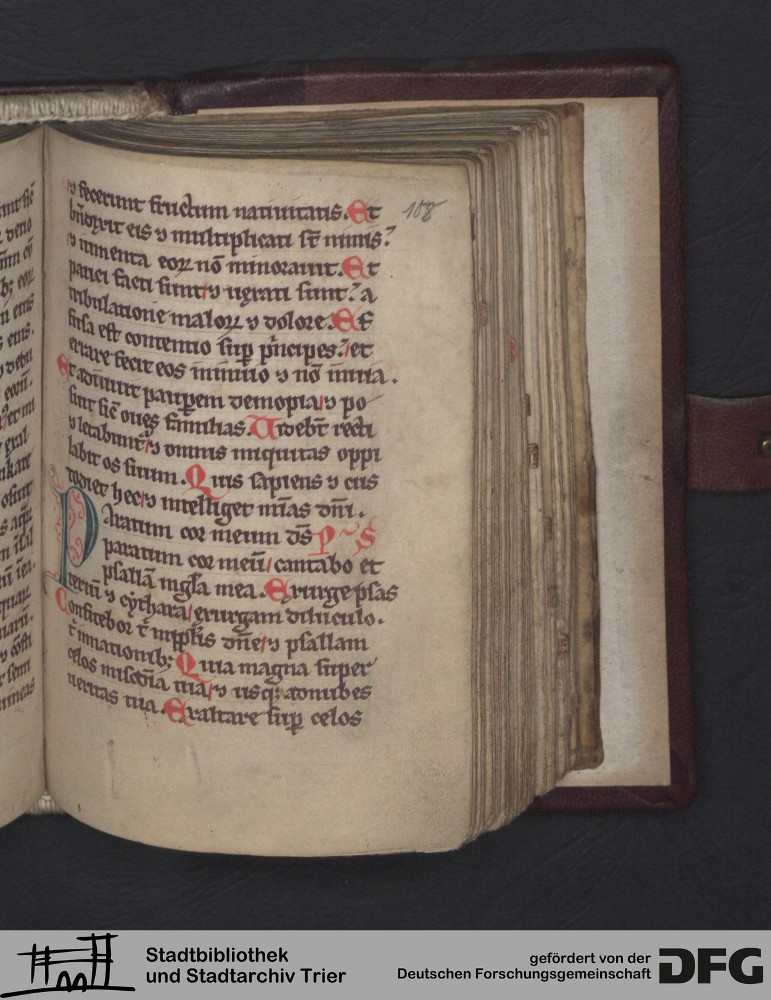 ⁊ fecerunt fructum natiuitatis. Et
bn̄dixit eis ⁊ multiplicati sūt nimis?
⁊ iumenta eoꝝ nō minorauit. Et
pauci facti sunt/⁊ uexati sunt? a
tribulatione maloꝝ ⁊ dolore. Ef
fusa est contentio sup̄ p̄ncipes?/et
errare fecit eos inīuio ⁊ nō in uia.
Et adiuuit paup̄em de inopia/⁊ po
suit sic̄ oues familias. Videbt̄ recti
⁊ letabunt᷑/⁊ omnis iniquitas oppi
labit os suum. Quis sapiens ⁊ cus
todiet hec/⁊ intelliget mīas dn̄i.
Paratum cor meum dς̄ P~S
paratum cor meū/cantabo et
psallā in gl̄a mea. Exurge psal
terīu ⁊ cythara/exurgam diluculo.
Confitebor t̄ in ppl̄is dn̄e/⁊ psallam
t̄ in nationib; Quia magna super
celos misc̄dia tua/⁊ usq; ad nubes
ueritas tua. Exaltare sup̄ celos
108
Stadtbibliothek
und Stadtarchiv Trier
gefördert von der
Deutschen Forschungsgemeinschaft
DFG